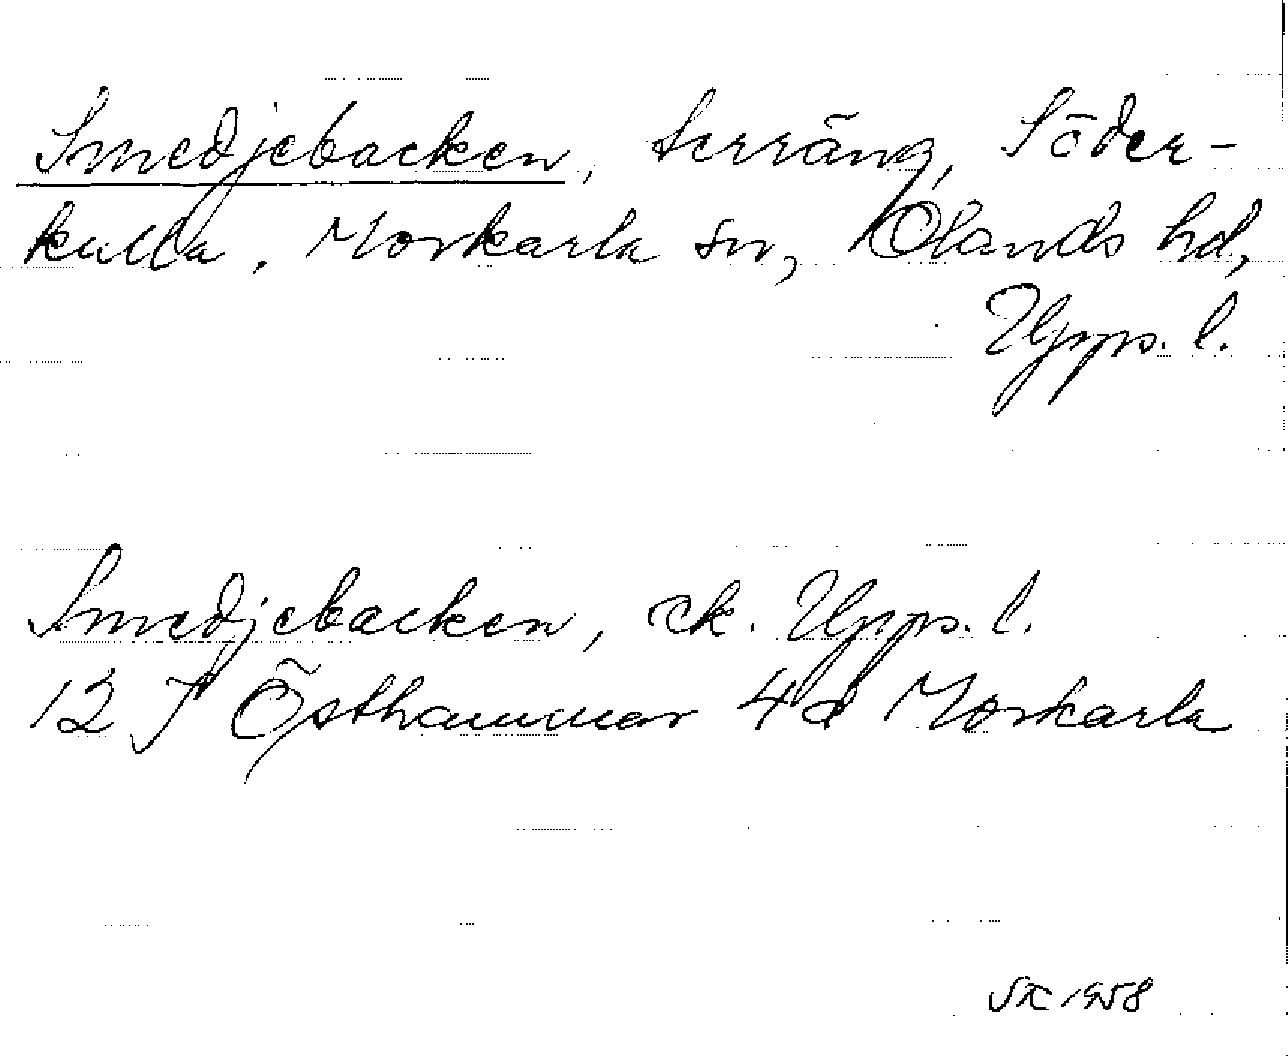 Smedjebacken, terräng, Söder-
kulla. Morkarla sn, Olands hd,
Upps. l.
Smedjebacken, ek. Upps. l.
12 I Östhammar 4d Morkarla
1958